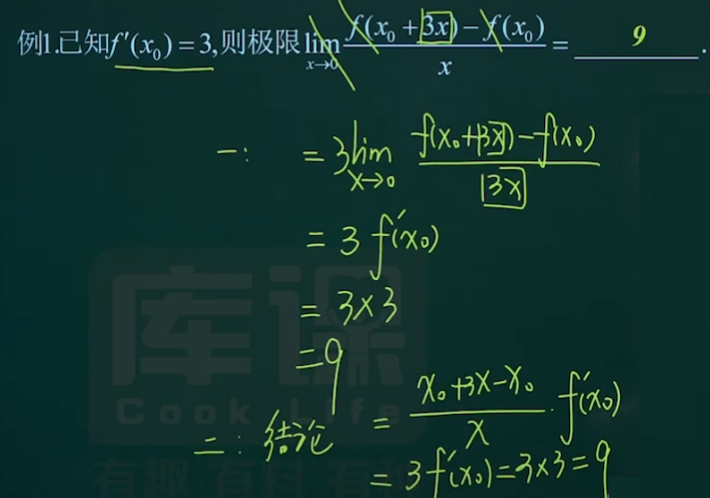 例1.已知f′(x₀)=3,则极限lim_{x→0} (f(x₀+3x)-f(x₀))/x = 9.
一: = 3lim_{x→0} (f(x₀+3x)-f(x₀))/3x
= 3f′(x₀)
= 3×3
=9
二:结论 = (x₀+3x-x₀)/x · f′(x₀)
= 3f′(x₀)=3×3=9
库课
Cook Life
有趣 有料 有